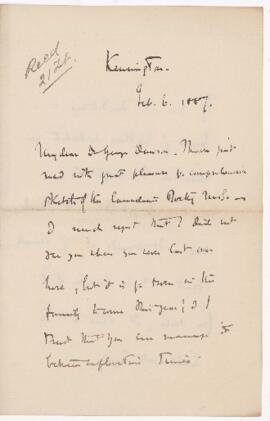 Recd
21 Feb.
Kensington.
Feb. 6. 1887.
My dear Dr George Dawson. I have just
read with great pleasure yr. comprehensive
sketch of the Canadian Rocky Mts.
I much regret that I did not
see you when you were last over
here, but it is yr turn in the
family to come this year, & I
trust that you can manage it
between exploration times.